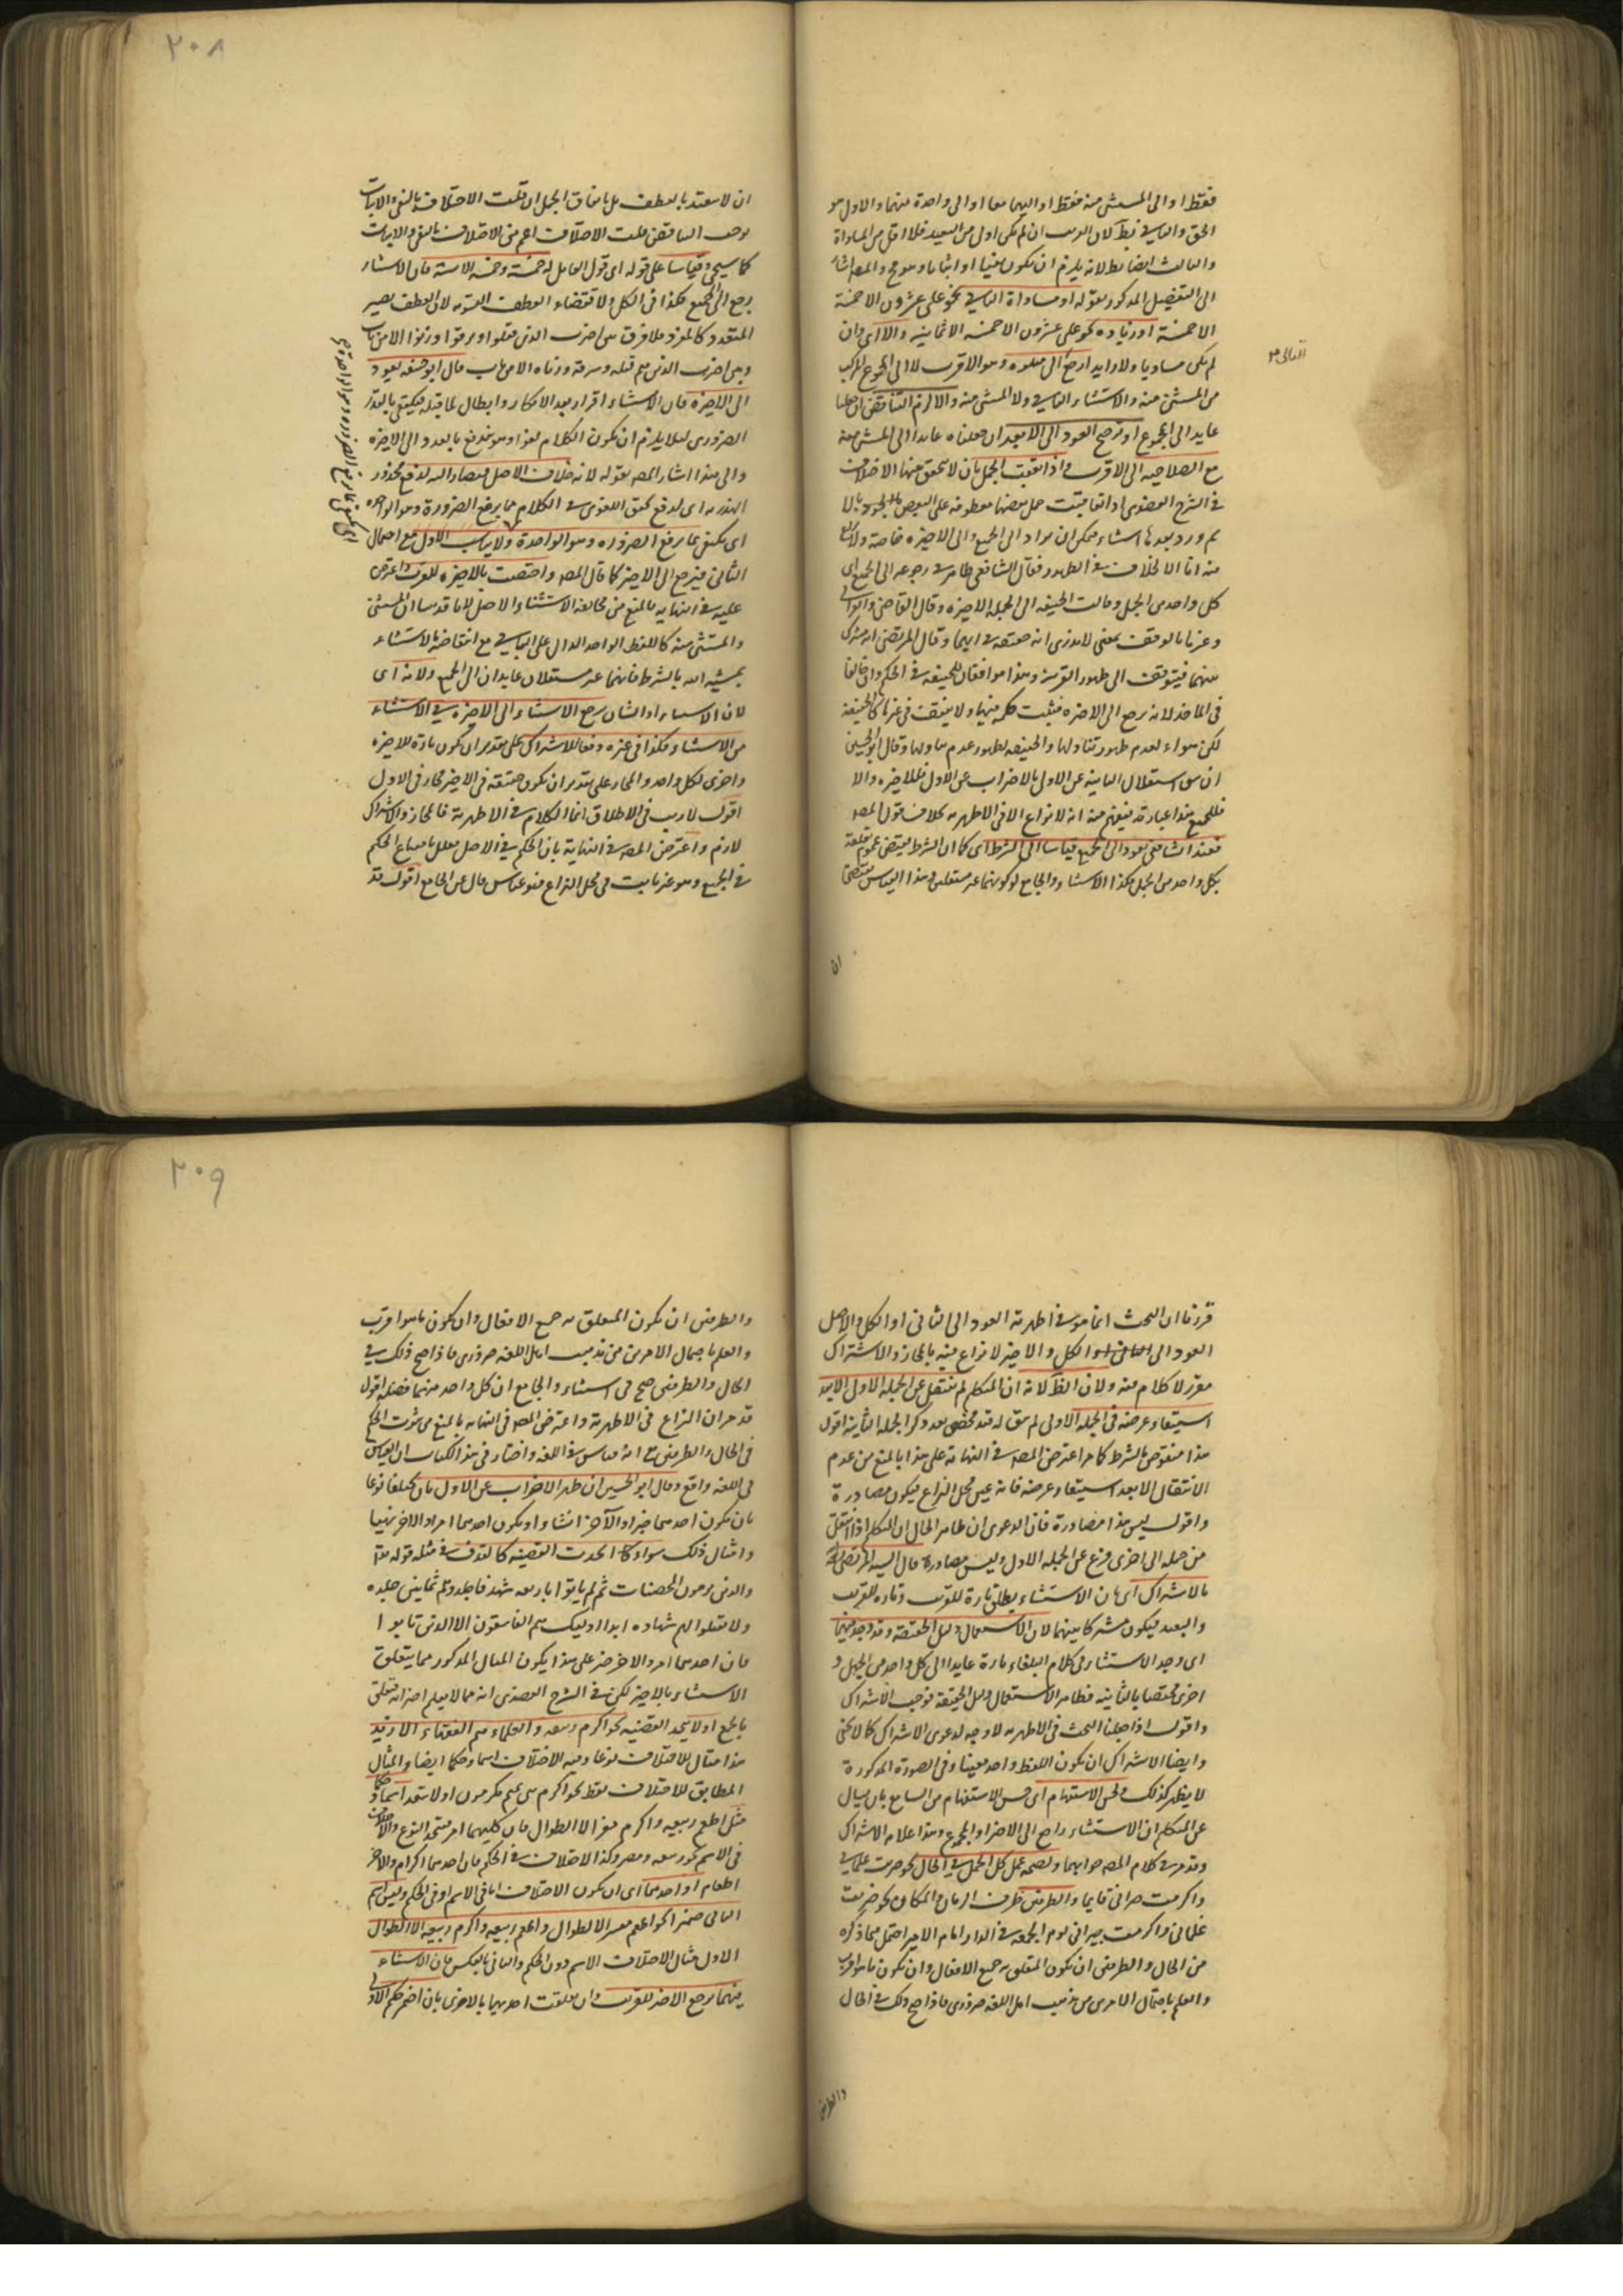 ٢٠٨
فقط او الى المستثنى منه فقط او اليهما معا او الى واحدة منهما والاول هو
الحق والثاني بط لان القريب ان لم يكن اولى من البعيد فلا اقل من المساواة
والثالث ايضا بط لانه يلزم ان يكون منفيا او اثباتا وهو مح والمص اشار
الى التفصيل المذكور بقوله او مساواة الثاني نحو على عشرون الا خمسة
الا خمسة او زياده نحو على عشرون الا خمسة الا ثمانية والا اى وان
لم يكن مساويا ولا زايدا رجع الى متلوه وهو الاقرب لا الى المجموع المركب
من المستثنى منه والاستثناء الثاني ولا المستثنى منه والا لزم التناقض ان جعلنا
عايدا الى المجموع او ترجيح العود الى الابعد ان جعلناه عايدا الى المستثنى منه
مع الصلاحيه الى الاقرب اذا تعقبت الجمل بان لا يتحقق منها الاختلاف
في الشرح العضدى اذا تعاقبت جمل بعضها معطوفه على البعض بالواو
ثم ورد بعدها استثناء فيمكن ان يراد الى الجميع والى الاخيره خاصة ولا نزاع
فيه انما الخلاف في الظهور فقال الشافعى ظاهر في رجوعه الى الجميع اى
كل واحد من الجمل وقالت الحنيفه الى الجمله الاخيره وقال القاضى والغزالي
وغيرهما بالوقف بمعنى لا ندرى انه حقيقه في ايهما وقال المرتضى انه مشترك
بينهما فيتوقف الى ظهور القرينه وهذا موافقان للحنيفه في الحكم وان خالفا
في الماخذ لانه يرجع الى الاخيره فيثبت حكمه فيها ولا يثبت في غيرها كالحنيفه
لكن هولاء لعدم ظهور تناولها والحنيفه لظهور عدم تناولها وقال ابو الحسين
ان تبين استقلال الثانيه عن الاولى بالاضراب عن الاول فللاخيره والا
فللجميع هذا عبارته فيفهم منه انه لا نزاع الا في الاظهريه بخلاف قول المص
فعند الشافعى يعود الى الجميع قياسا الى الشرط اى كما ان الشرط يقتضى عموم تعلقه
بكل واحد من الجمل فكذا الاستثناء والجامع كونهما غير مستقلين وهذا القياس يقتضى
ان
ان لا يعتد بالعطف بل باتفاق الجمل ان قلت الاختلاف بالنفى والاثبات
يوجب التناقض قلت الاختلاف اعم من الاختلاف بالنفى والاثبات
كما سيجى وقياسا على قوله اى قول القايل له خمسة وخمسة الا ستة فان الاستثناء
يرجع الى الجميع فكذا في الكل ولاقتضاء العطف التسويه لان العطف يصير
المتعدد كالمفرد فلا فرق بين اضرب الذين قتلوا وسرقوا وزنوا الا من تاب
وبين اضرب الذين هم قتله وسرقة وزناه الا من تاب قال ابو حنيفه يعود
الى الاخيرة فان الاستثناء اقرار بعد الانكار وابطال لما قبله فيكتفى بالقدر
الضرورى لئلا يلزم ان يكون الكلام لغوا وهو يندفع بالعود الى الاخيره
والى هذا اشار المص بقوله لانه خلاف الاصل فيصار اليه لدفع محذور
الهذريه اى لدفع تحقق اللغوى في الكلام بما يرفع الضرورة وهو الواحده
اى يكتفى بما يرفع الضروره وهو الواحدة ولا يناسب الاول مع احتمال
الثانى فيرجع الى الاخير كما قال المص واختصت بالاخيره للقرب واعترض
عليه في النهايه بالمنع من مخالفة الاستثناء الاصل لانا قد بينا ان المستثنى
والمستثنى منه كاللفظ الواحد الدال على الباقي مع انتقاضه بالاستثناء
بمشيه الله بالشرط فانهما غير مستقلان عايدان الى الجميع ولانه اى
لان الاستثناء او الشان يرجع الاستثناء الى الاخيره في الاستثناء
من الاستثناء فكذا في غيره دفعا للاشتراك على تقدير ان يكون تارة للاخيره
واخرى لكل واحد والمجاز على تقدير ان يكون حقيقه في الاخير مجاز في الاول
اقول لا ريب في الاطلاق انما الكلام في الاظهرية فالمجاز والاشتراك
لازم واعترض المص في النهاية بان الحكم في الاصل معلل بامتناع الحكم
في الجميع وهو غير ثابت في محل النزاع فهو قياس خال عن الجامع اقول قد
٢٠٩
قررنا ان البحث انما هو في اظهرية العود الى الثانى او الكل والاصل
العود الى الكل والاخير لا نزاع فيه بالمجاز والاشتراك
مقرر لا كلام فيه ولان الظ لانه ان المتكلم لم ينتقل عن الجمله الاولى الا بعد
استيفاء غرضه في الجمله الاولى لم يبق له تخصيص بعد ذكر الجمله الثانية اقول
هذا منقوض بالشرط كما مر اعترض المص في النهاية على هذا بالمنع من عدم
الانتقال الا بعد استيفاء غرضه فانه عين محل النزاع فيكون مصادرة
واقول ليس هذا مصادرة فان الدعوى ان ظاهر الحال ان المتكلم اذا انتقل
من جمله الى اخرى فرغ عن الجمله الاولى وليس مصادرة قال السيد المرتضى
بالاشتراك اى بان الاستثناء يطلق تارة للقريب وتاره للقريب
والبعيد فيكون مشتركا بينهما لان الاستعمال دليل الحقيقه وقد وجد فيهما
اى وجد الاستثناء في كلام البلغاء تارة عايدا الى كل واحد من الجمل و
اخرى مختصا بالثانيه فظاهر الاستعمال دليل الحقيقة فوجب الاشتراك
واقول اذا جعلنا البحث في الاظهريه لا وجه لدعوى الاشتراك كما لا يخفى
وايضا الاشتراك ان يكون اللفظ واحد معينا وفي الصورة المذكورة
لا يظهر كذلك ولحسن الاستفهام اى حسن الاستفهام من السامع بان يسال
عن المتكلم ان الاستثناء راجع الى الاخير او المجموع وهذا علام الاشتراك
وقد مر في كلام المص جوابهما ولصحه عمل كل الجمل في الحال نحو ضربت غلماني
واكرمت جيرانى قايما والطرفين ظرف الزمان والمكان نحو ضربت
غلمانى واكرمت جيرانى يوم الجمعه في الدار امام الامير احتمل ما ذكره
من الحال والطرفين ان يكون المتعلق به جميع الافعال وان يكون ما هو اقرب
والعلم باحتمال الامرين من مذهب اهل اللغه ضرورى فاذا صح ذلك في الحال
والطرفين
والطرفين ان يكون المتعلق به جميع الافعال وان يكون ما هو اقرب
والعلم باحتمال الامرين من مذهب اهل اللغه ضرورى فاذا صح ذلك في
الحال والطرفين صح في الاستثناء والجامع ان كل واحد منهما فضله اقول
قد مر ان النزاع في الاظهرية واعترض المص في النهايه بالمنع من ثبوت الحكم
في الحال والطرفين مع انه قياس في اللغه واختار في هذا الكتاب ان القياس
في اللغه واقع وقال ابو الحسين ان ظهر الاضراب عن الاول بان يختلفا نوعا
بان يكون احدهما خبرا والآخر انشاء او يكون احدهما امرا والاخر نهيا
وامثال ذلك سواء كان اتحدت القضيه كالقذف في مثله قوله تعا
والذين يرمون المحصنات ثم لم ياتوا باربعه شهداء فاجلدوهم ثمانين جلده
ولا تقبلوا لهم شهاده ابدا اوليك هم الفاسقون الا الذين تابوا
فان احدهما امر والاخر خبر على هذا يكون المثال المذكور مما يتعلق
الاستثناء بالاخير لكن في الشرح العضدى انه مما لا يعلم اخر انه تعلق
بالجمع او لا يتحد القضيه نحو اكرم ربيعه والعلماء هم الفقهاء الا زيد
هذا مثال للاختلاف نوعا وفيه الاختلاف اسما وحكما ايضا والمثال
المطابق للاختلاف فقط نحو اكرم بنى تميم مكرمون او لا يتعدا اسما وحكما
مثل اطعم ربيعه واكرم مضر الا الطوال فان كليهما امر متحد النوع والاختلاف
في الاسم نحو ربيعه ومضر وكذا الاختلاف في الحكم فان احدهما اكرام والاخر
اطعام او احدهما اى ان يكون الاختلاف اما في الاسم او في الحكم وليس اسم
الثانى ضميرا نحو اطعم مضر الا الطوال واطعم ربيعه واكرم ربيعه الا الطوال
الاول مثال الاختلاف الاسم دون الحكم والثانى بالعكس فان الاستثناء
فيهما يرجع الاخير للقريب وان تعلقت احديهما بالاخرى بان اضمر حكم الاولى